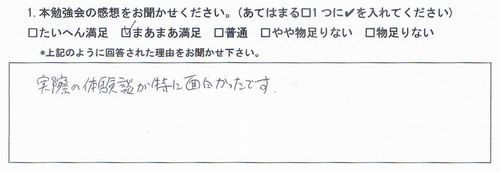 1. 本勉強会の感想をお聞かせください。(あてはまる□1つに✔を入れてください)
□たいへん満足 ☑まあまあ満足 □普通 □やや物足りない □物足りない
*上記のように回答された理由をお聞かせ下さい。
実際の体験談が特に面白かったです.